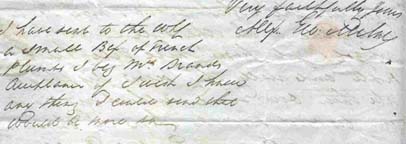 Very faithfully yours
I have sent to the
a small Box of French
Plumbs I beg Mrs Brands
Acceptance of I wish I knew
any thing I could send that
would be more